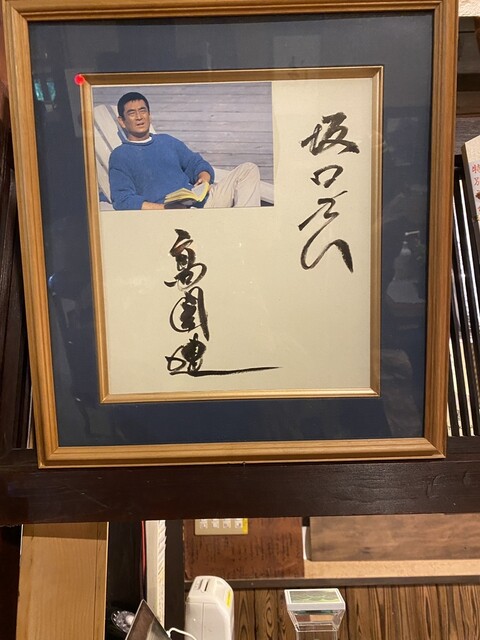 坂口さん
高倉健